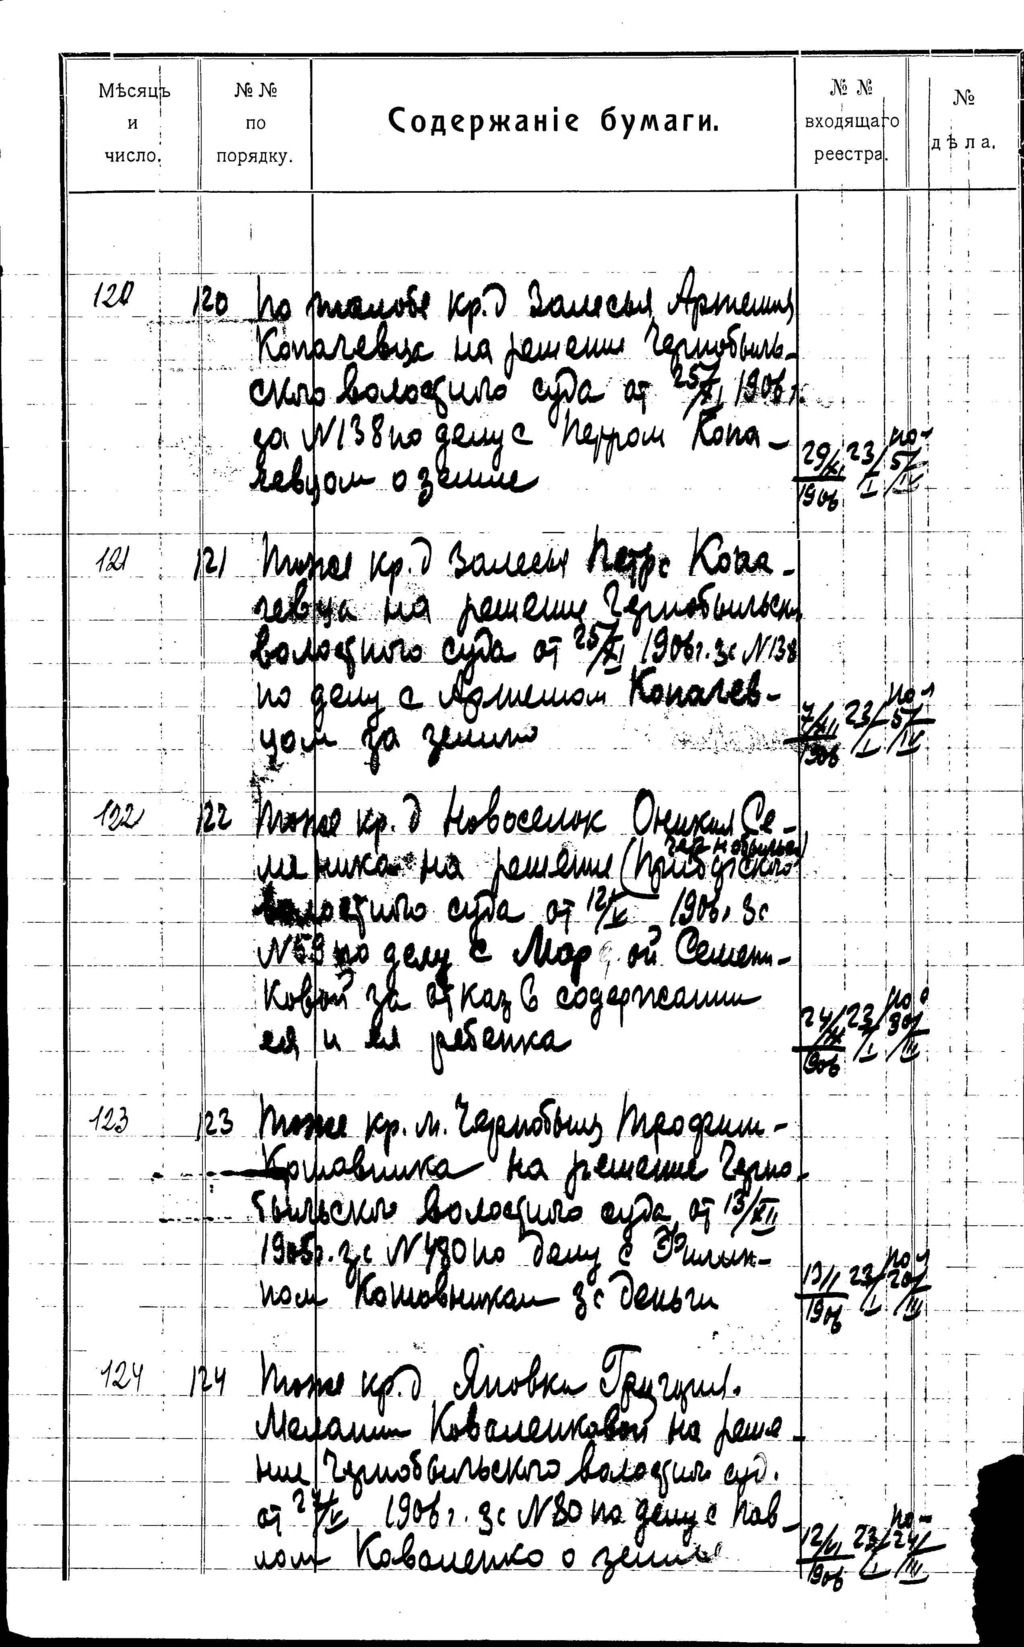 Мѣсяцъ и число.
№ № по порядку.
Содержаніе бумаги.
№ № входящаго реестра.
№ дѣла.
120 120 По жалобе кр. д Залесья Артемия
Копачевца на решение Чернобыль-
ского волостного суда от 25/XI 1906 г.
за N138 по делу с Петром Копа-
чевцом о земле
29/XI 1906 23/I по- 5/IV
121 121 Тоже кр. д Залесья Петра Копа-
чевца на решение Чернобыльск
волостного суда от 25/XI 1906 г. за N138
по делу с Артемом Копачев-
цом за землю
7/XII 1906 23/I по- 5/IV
122 122 Тоже кр. д Новоселок Оникия Се-
меника на решение (Прибурского
Чернобыльск)
волостного суда от 12/V 1906 за
N59 по делу с Марфой Семени-
ковой за отказ в содержании
ея и ея ребенка
1906 23/I по 30/III
123 123 Тоже кр. м. Чернобыля Трофим-
Котовника на решение Черно-
быльского волостного суда от 13/XII
1905 г. за N480 по делу с Филип-
пом Котовником за деньги
13/I 1906 23/I по- 20/III
124 124 Тоже кр. д Яновки Григория.
Мелании Коваленковой на реше-
ние Чернобыльского волостного суд.
от 24/V 1906 г. за N80 по делу с Пав-
лом Коваленко о земле
12/VI 1906 23/I по- 24/III